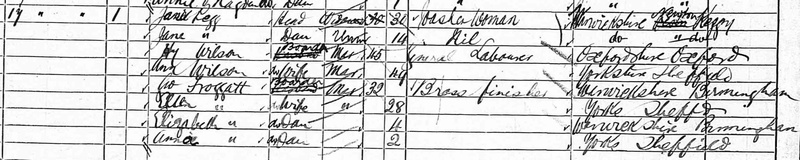 Dau
19 " " 1 Jane Legg Head 31 Washer Woman Warwickshire
Jane " Dau Unm 14 Nil do " do
Hy Wilson Boarder Mar 45 General Labourer Oxfordshire Oxford
Ann Wilson Wife Mar 49 Yorkshire Sheffield
Boarder Mar 32 Brass finisher Warwickshire Birmingham
Ellen " Wife " 28 Yorks Sheffd
Elizabeth " Dau 4 Warwickshire Birmingham
Annie " Dau 2 Yorks Sheffield